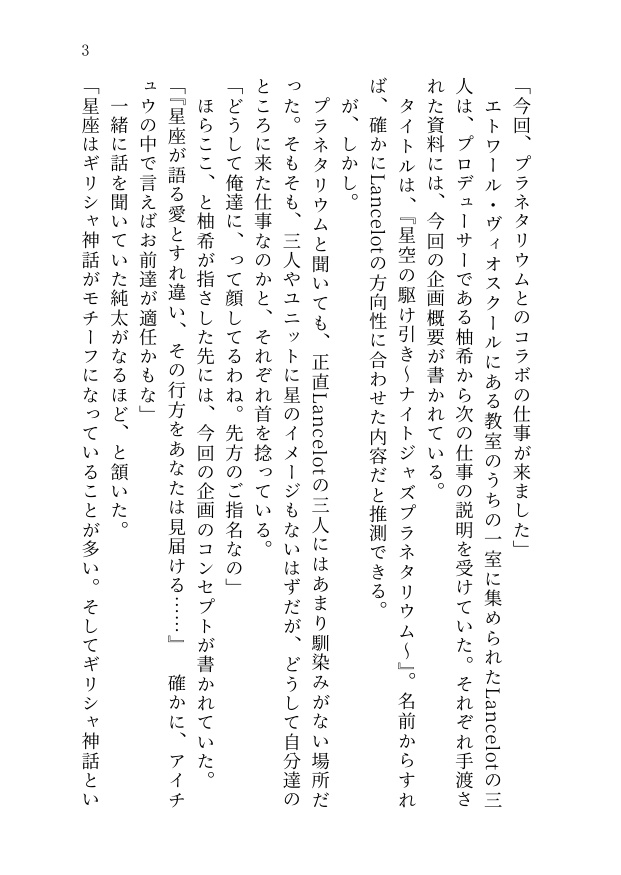 3
「今回、プラネタリウムとのコラボの仕事が来ました」
　エトワール・ヴィオスクールにある教室のうちの一室に集められたLancelotの三
人は、プロデューサーである柚希から次の仕事の説明を受けていた。それぞれ手渡さ
れた資料には、今回の企画概要が書かれている。
　タイトルは、『星空の駆け引き～ナイトジャズプラネタリウム～』。名前からすれ
ば、確かにLancelotの方向性に合わせた内容だと推測できる。
　が、しかし。
　プラネタリウムと聞いても、正直Lancelotの三人にはあまり馴染みがない場所だ
った。そもそも、三人やユニットに星のイメージもないはずだが、どうして自分達の
ところに来た仕事なのかと、それぞれ首を捻っている。
「どうして俺達に、って顔してるわね。先方のご指名なの」
　ほらここ、と柚希が指さした先には、今回の企画のコンセプトが書かれていた。
「『星座が語る愛とすれ違い、その行方をあなたは見届ける……』　確かに、アイチ
ュウの中で言えばお前達が適任かもな」
　一緒に話を聞いていた純太がなるほど、と頷いた。
「星座はギリシャ神話がモチーフになっていることが多い。そしてギリシャ神話とい